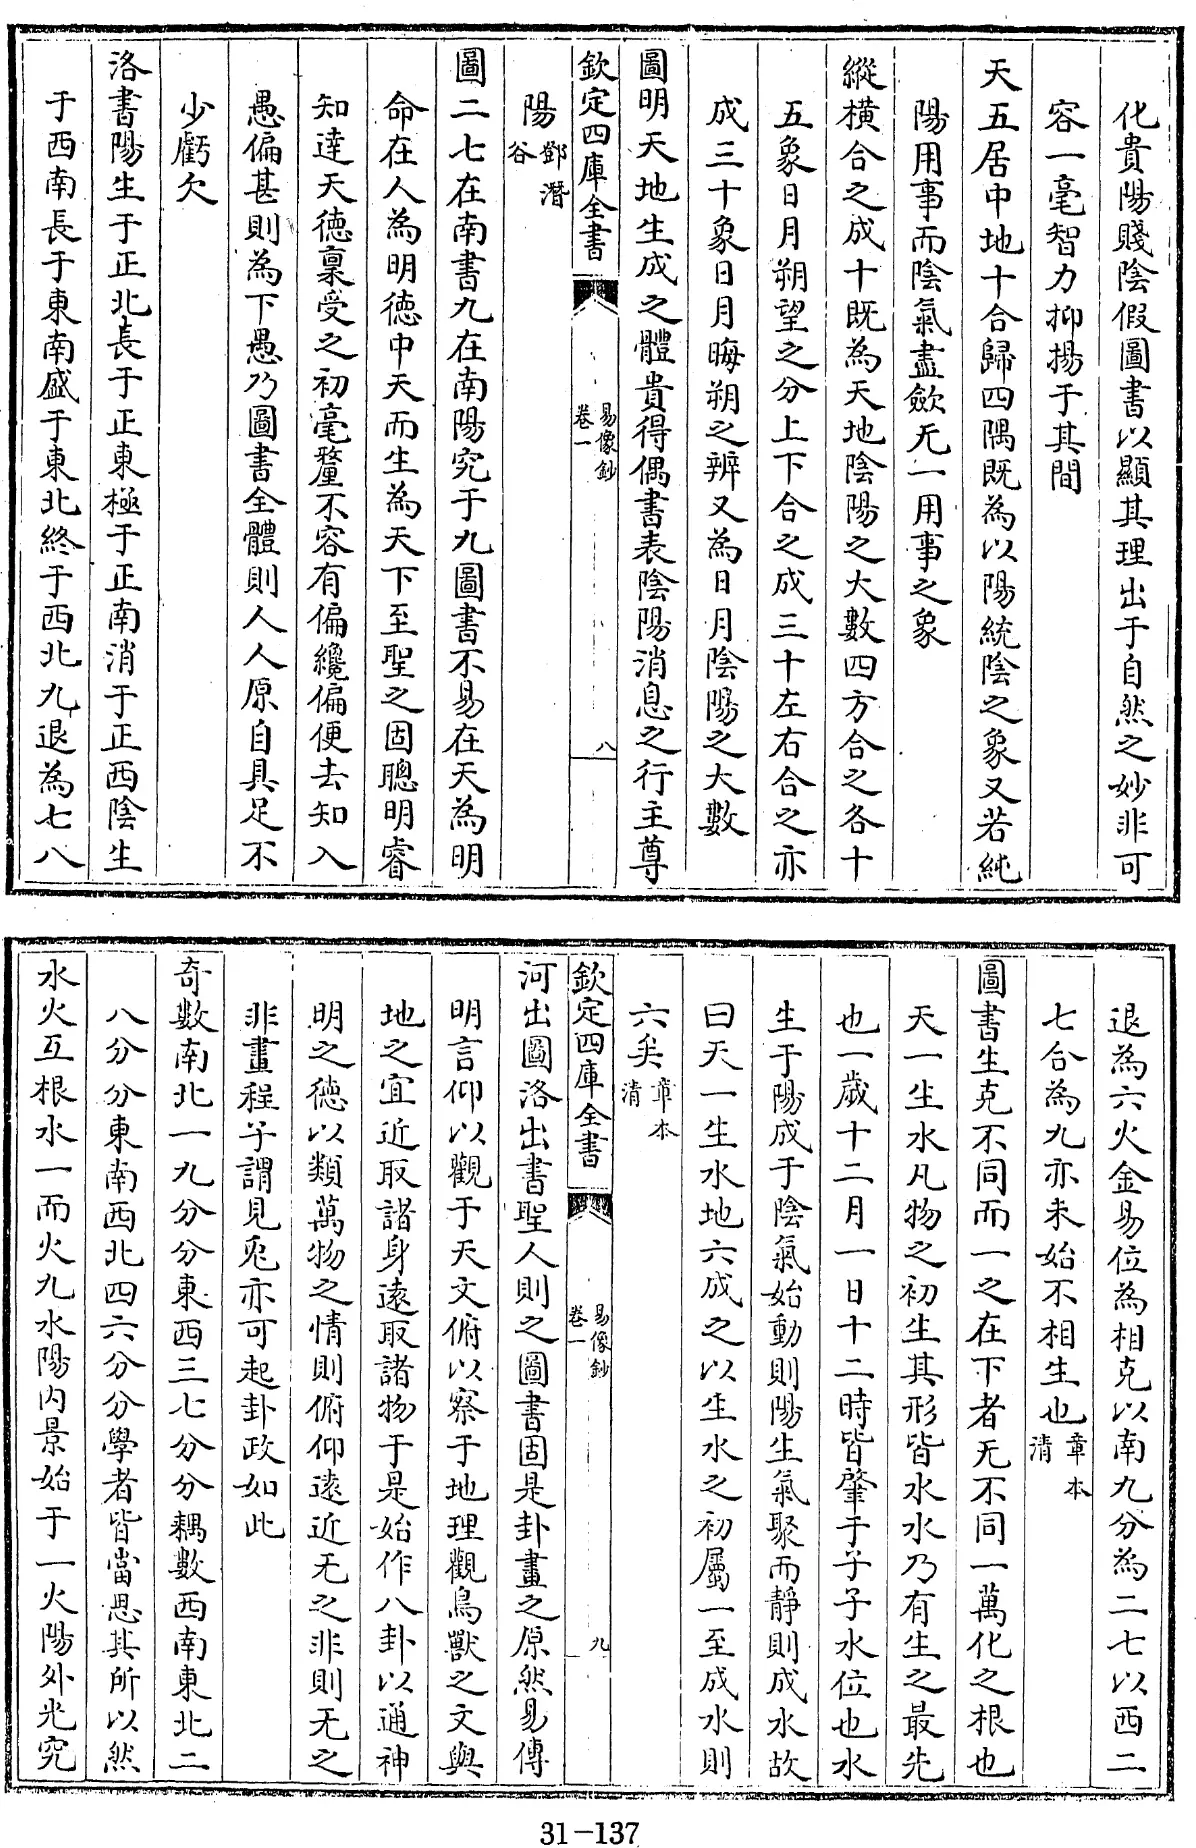 化貴陽賤陰假圖書以顯其理出于自然之妙非可
容一毫智力抑揚于其間
天五居中地十合歸四隅既為以陽統陰之象又若純
陽用事而陰氣盡斂无一用事之象
縱橫合之成十既為天地陰陽之大數四方合之各十
五象日月朔望之分上下合之成三十左右合之亦
成三十象日月晦朔之辨又為日月陰陽之大數
圖明天地生成之體貴得偶書表陰陽消息之行主尊
欽定四庫全書
易像鈔
卷一
八
陽鄧潛
谷
圖二七在南書九在南陽究于九圖書不易在天為明
命在人為明德中天而生為天下至聖之固聰明睿
知達天德稟受之初毫釐不容有偏纔偏便去知入
愚偏甚則為下愚乃圖書全體則人人原自具足不
少虧欠
洛書陽生于正北長于正東極于正南消于正西陰生
于西南長于東南盛于東北終于西北九退為七八
退為六火金易位為相克以南九分為二七以西二
七合為九亦未始不相生也章本
清
圖書生克不同而一之在下者无不同一萬化之根也
天一生水凡物之初生其形皆水水乃有生之最先
也一歲十二月一日十二時皆肇于子子水位也水
生于陽成于陰氣始動則陽生氣聚而靜則成水故
曰天一生水地六成之以生水之初屬一至成水則
六矣章本
清
欽定四庫全書
易像鈔
卷一
九
河出圖洛出書聖人則之圖書固是卦畫之原然易傳
明言仰以觀于天文俯以察于地理觀鳥獸之文與
地之宜近取諸身遠取諸物于是始作八卦以通神
明之德以類萬物之情則俯仰遠近无之非則无之
非畫程子謂見兎亦可起卦政如此
奇數南北一九分分東西三七分分耦數西南東北二
八分分東南西北四六分分學者皆當思其所以然
水火互根水一而火九水陽内景始于一火陽外光究
31-137